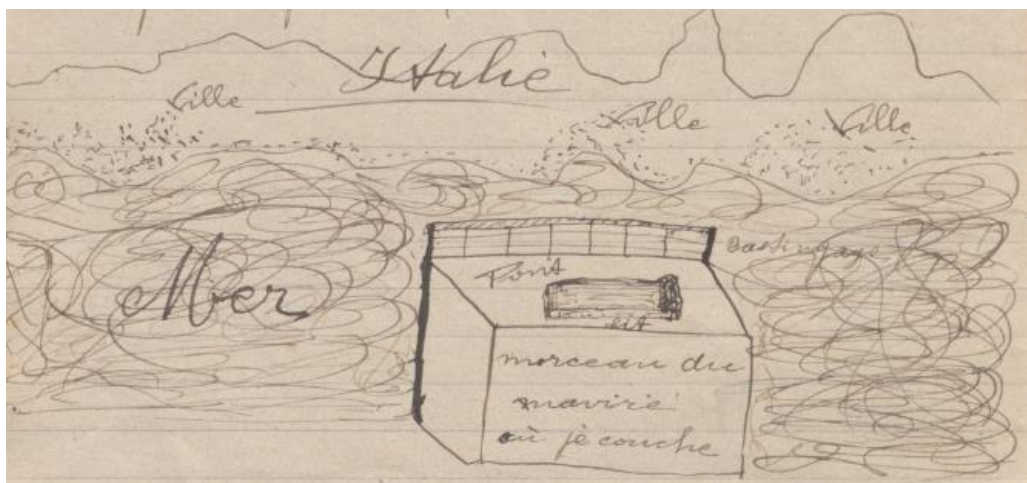 Italie
Ville
Ville
Ville
Mer
Bastingage
Pont
mon lit
morceau du
navire
où je couche